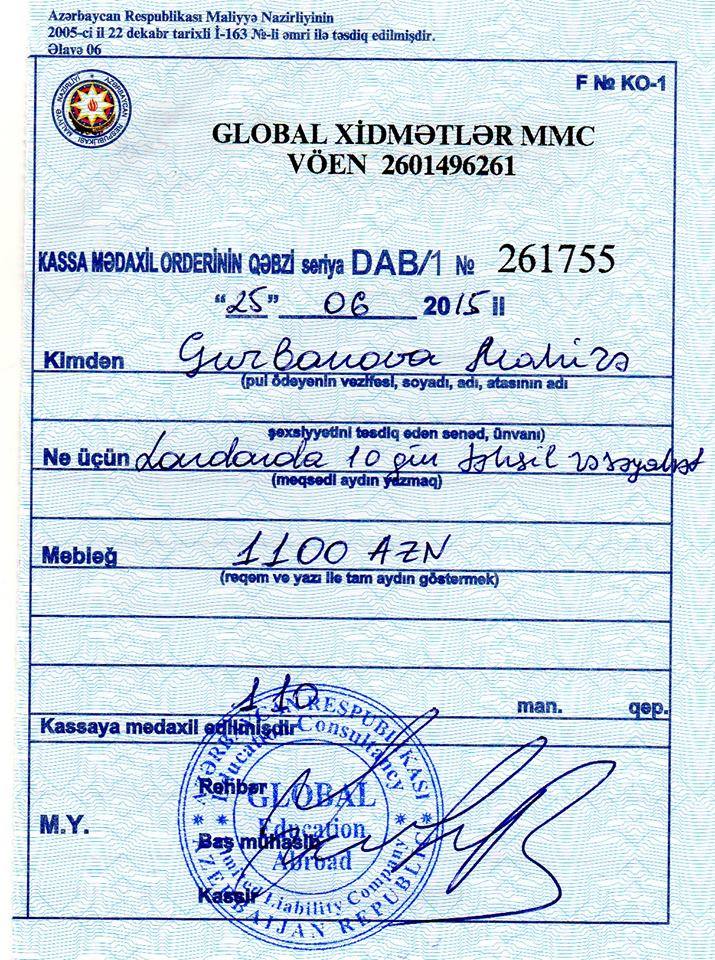 Azərbaycan Respublikası Maliyyə Nazirliyinin
2005-ci il 22 dekabr tarixli İ-163 №-li əmri ilə təsdiq edilmişdir.
Əlavə 06
F № KO-1
AZƏRBAYCAN RESPUBLİKASI MALİYYƏ NAZİRLİYİ
GLOBAL XİDMƏTLƏR MMC
VÖEN 2601496261
KASSA MƏDAXİL ORDERİNİN QƏBZİ seriya DAB/1 № 261755
"25" 06 2015 il
Kimdən Gurbanova Mahirə
(pul ödəyənin vəzifəsi, soyadı, adı, atasının adı
şəxsiyyətini təsdiq edən sənəd, ünvanı)
Nə üçün Londonda 10 gün təhsil və səyahət
(məqsədi aydın yazmaq)
Məbləğ 1100 AZN
(rəqəm və yazı ilə tam aydın göstərmək)
110 man. qəp.
Kassaya mədaxil edilmişdir
Rəhbər
M.Y.
Baş mühasib
Kassir
AZƏRBAYCAN RESPUBLİKASI
Education Consultancy
GLOBAL
Education
Abroad
Limited Liability Company
AZERBAIJAN REPUBLIC